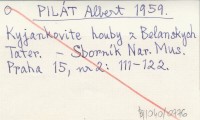 PILÁT Albert 1959.
Kyjankovité houby z Belanských
Tater. – Sborník Nar. Mus.
Praha 15, nr 2: 111–122.